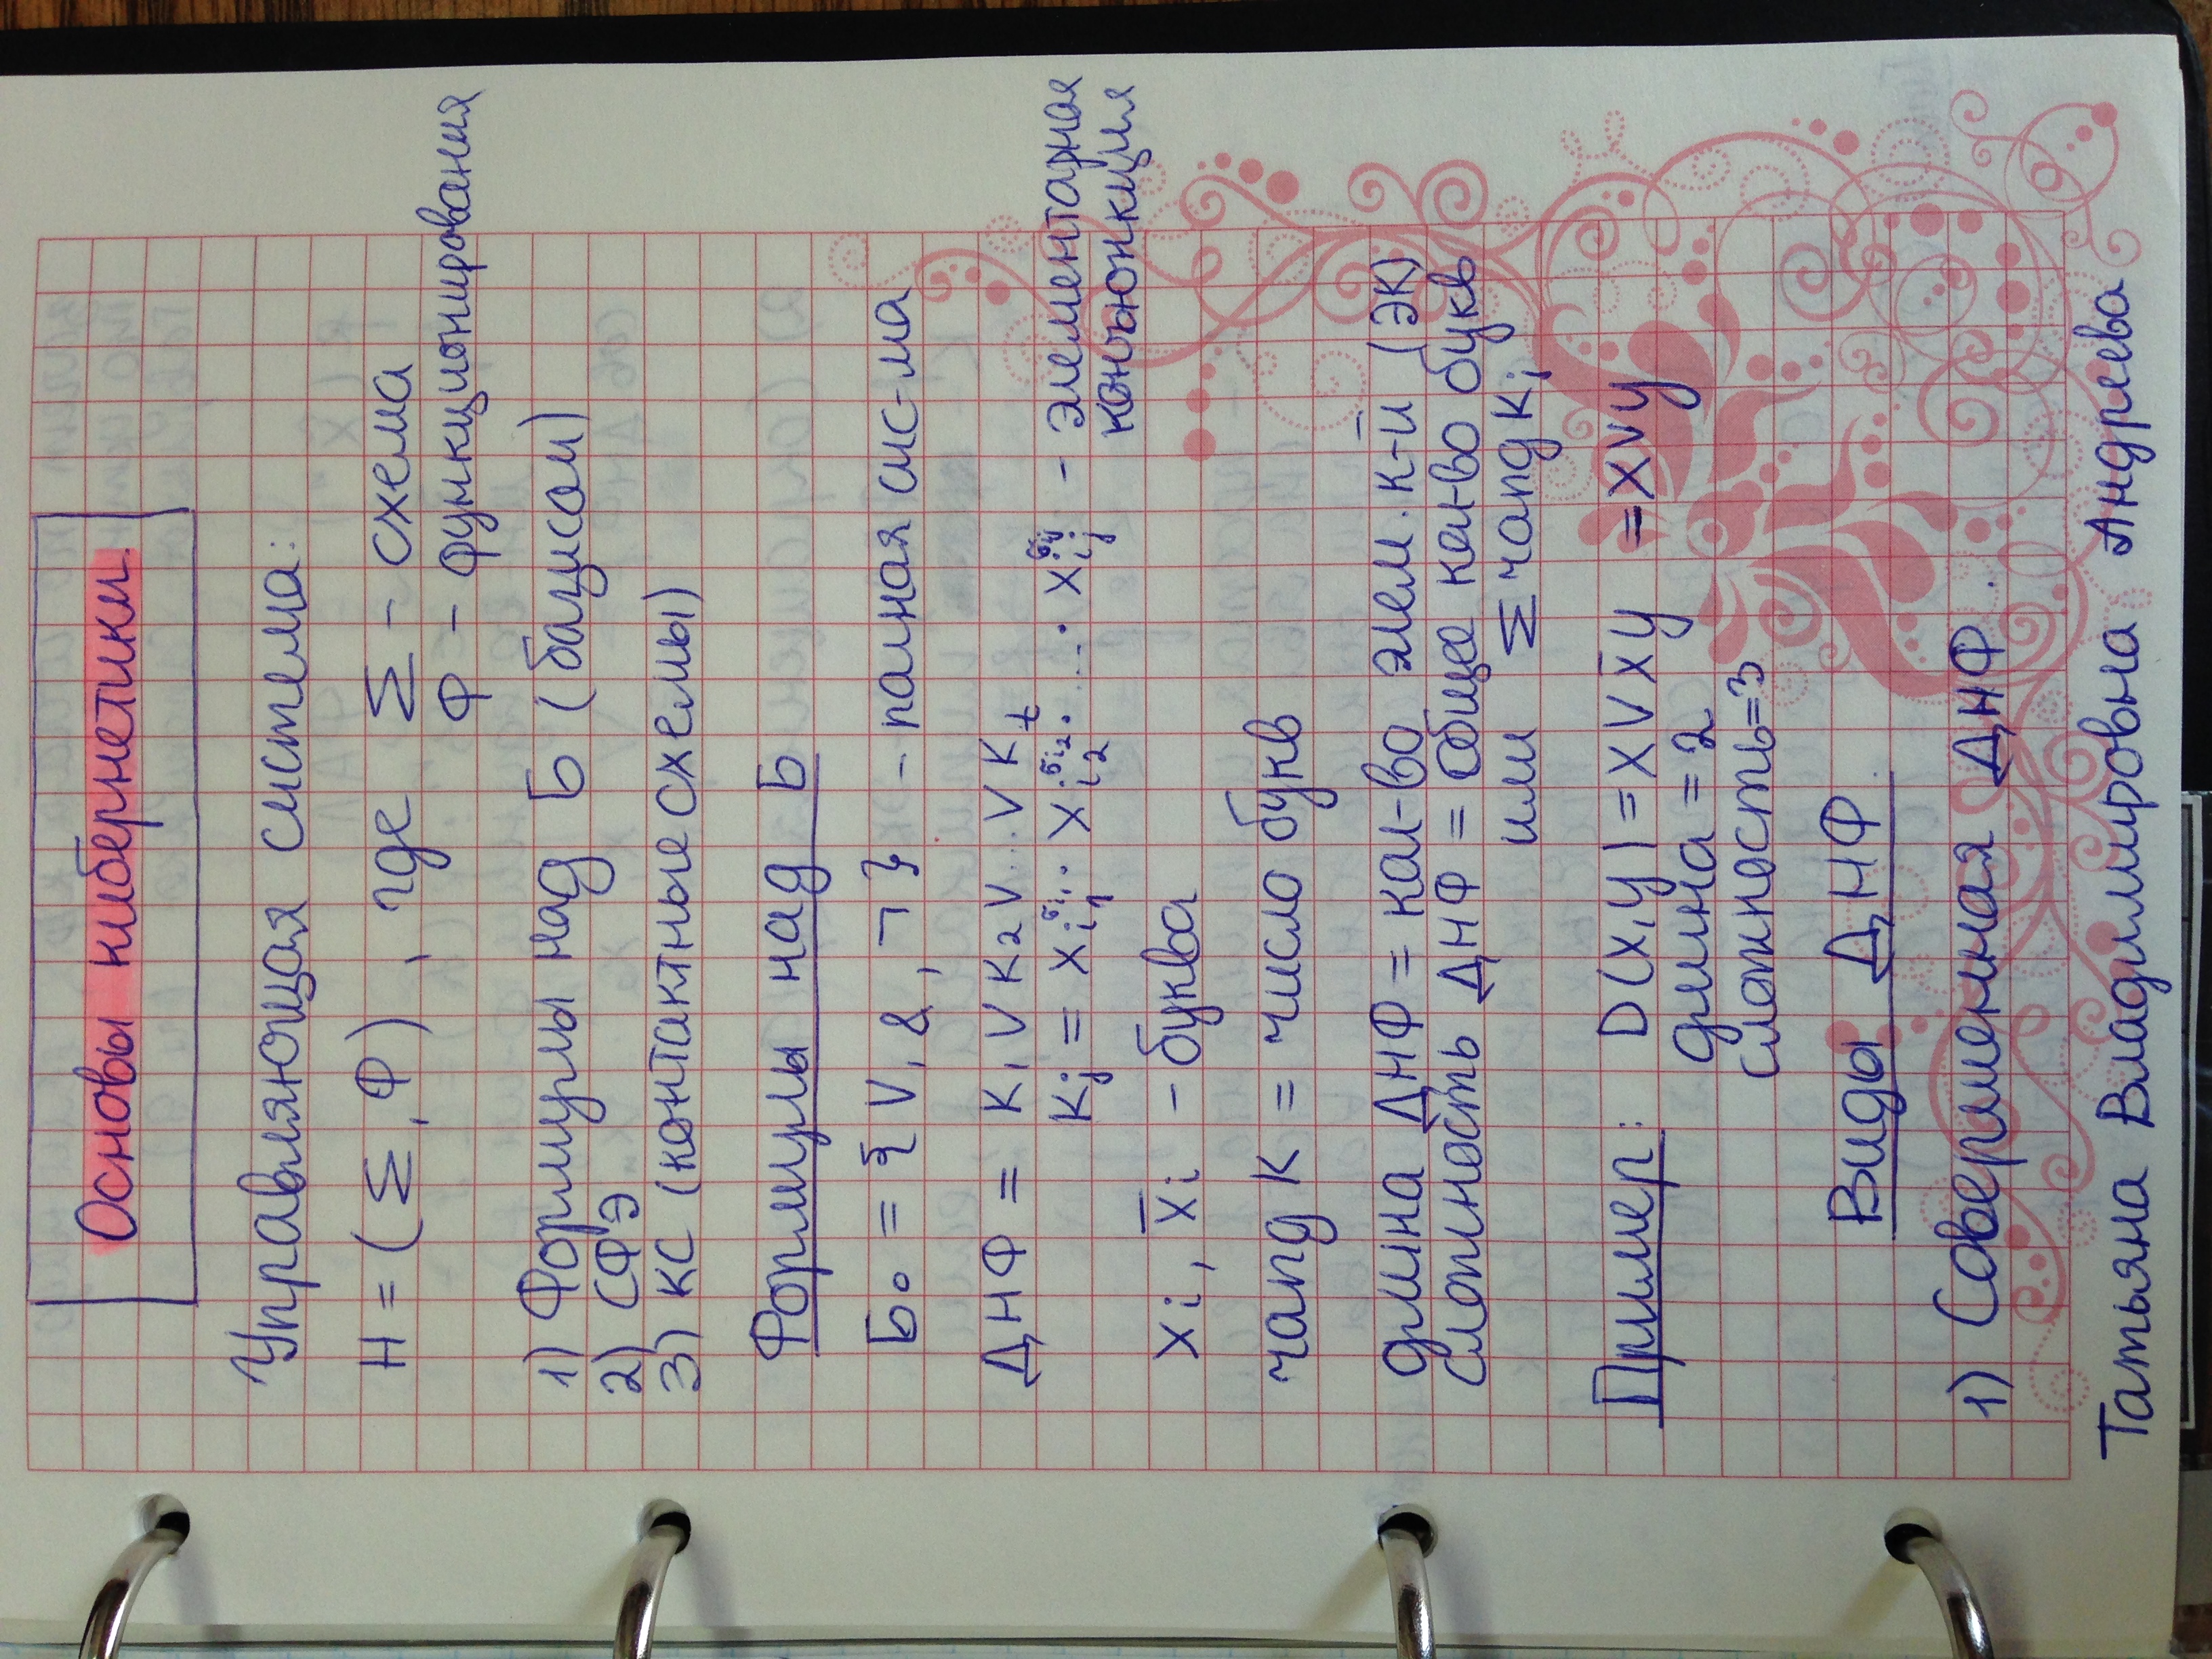 Основы кибернетики.
Управляющая система:
H = (Σ, Ф), где Σ - схема
Ф - функционирования
1) Формулы над Б (базисом)
2) СФЭ
3) КС (контактные схемы)
Формулы над Б
Б₀ = {V, &, ¬} - полная сис-ма
ДНФ = K₁ V K₂ V...V Kₜ
Kj = x_i₁^σi₁ · x_i₂^σi₂ · ... · x_ij^σij - элементарная
конъюнкция
xi, x̄i - буква
ранг K = число букв
длина ДНФ = кол-во элем. к-й (ЭК)
сложность ДНФ = Общее кол-во букв
или Σ ранг Ki
Пример: D(x,y) = x V x̄y = x V y
длина = 2
сложность=3
Виды ДНФ
1) Совершенная ДНФ.
Татьяна Владимировна Андреева